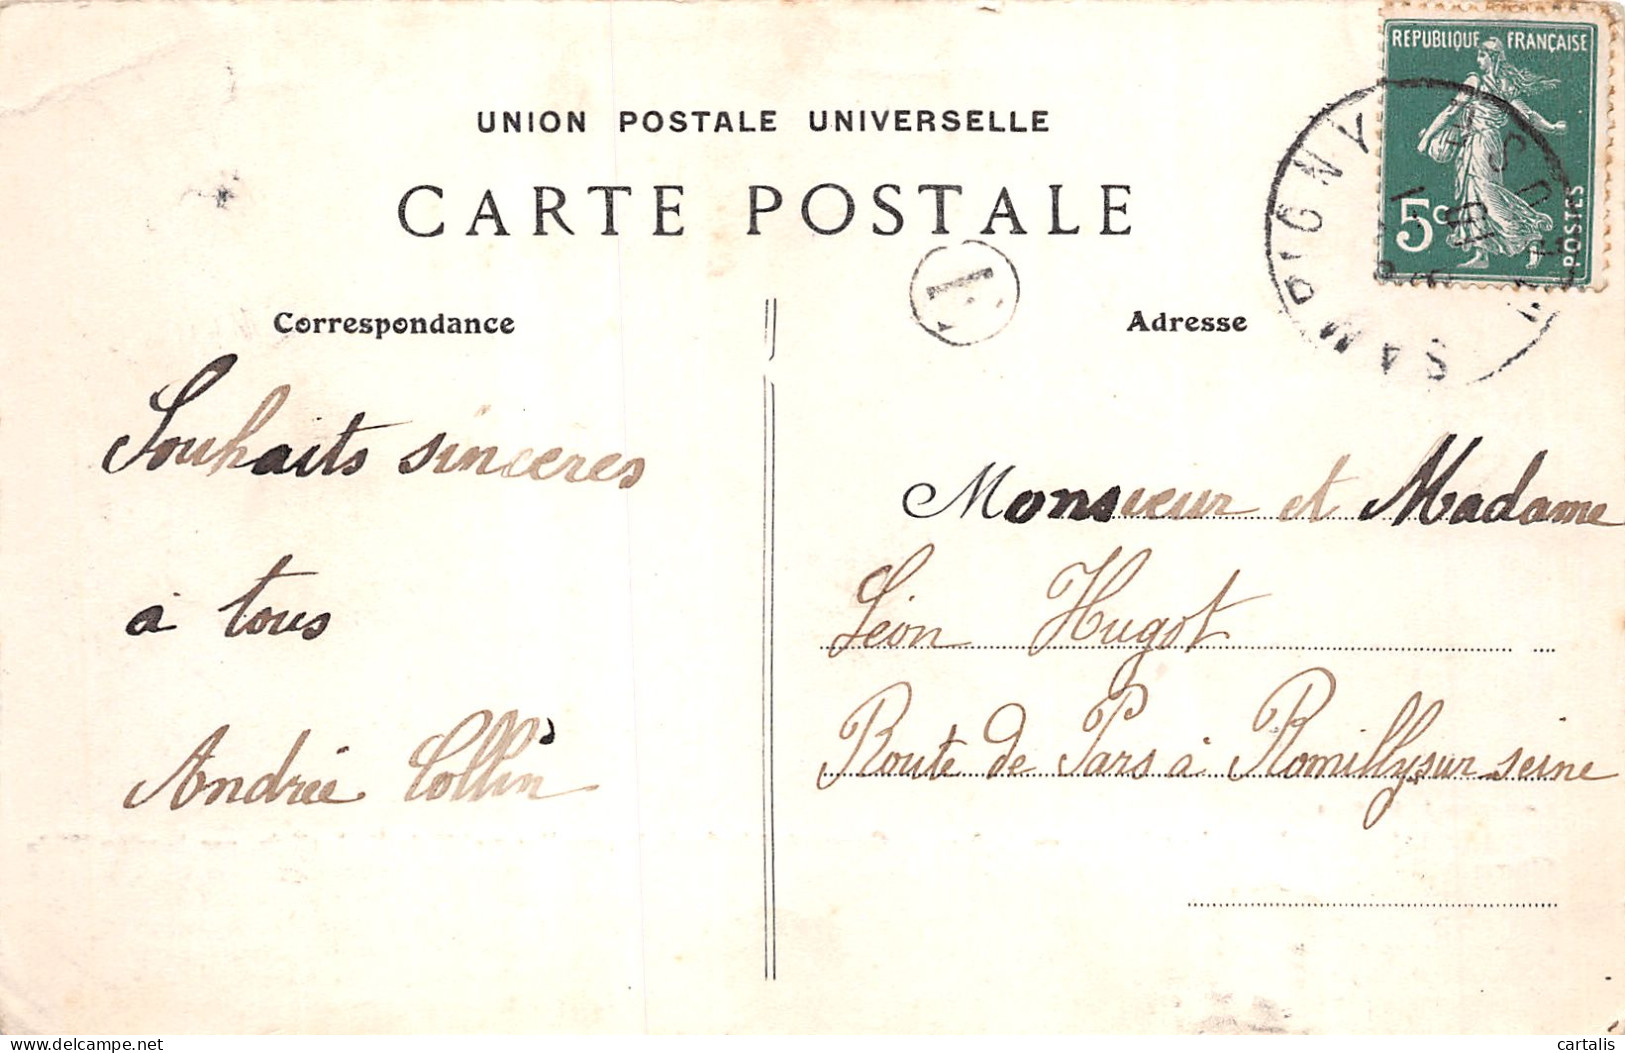 REPUBLIQUE FRANÇAISE
5c
POSTES
SAMPIGNY
MEUSE
UNION POSTALE UNIVERSELLE
CARTE POSTALE
Correspondance
Souhaits sinceres
à tous
Andrée Collin
Adresse
Monsieur et Madame
Léon Hugot
Route de Pars à Romilly sur seine
delcampe.net
cartalis